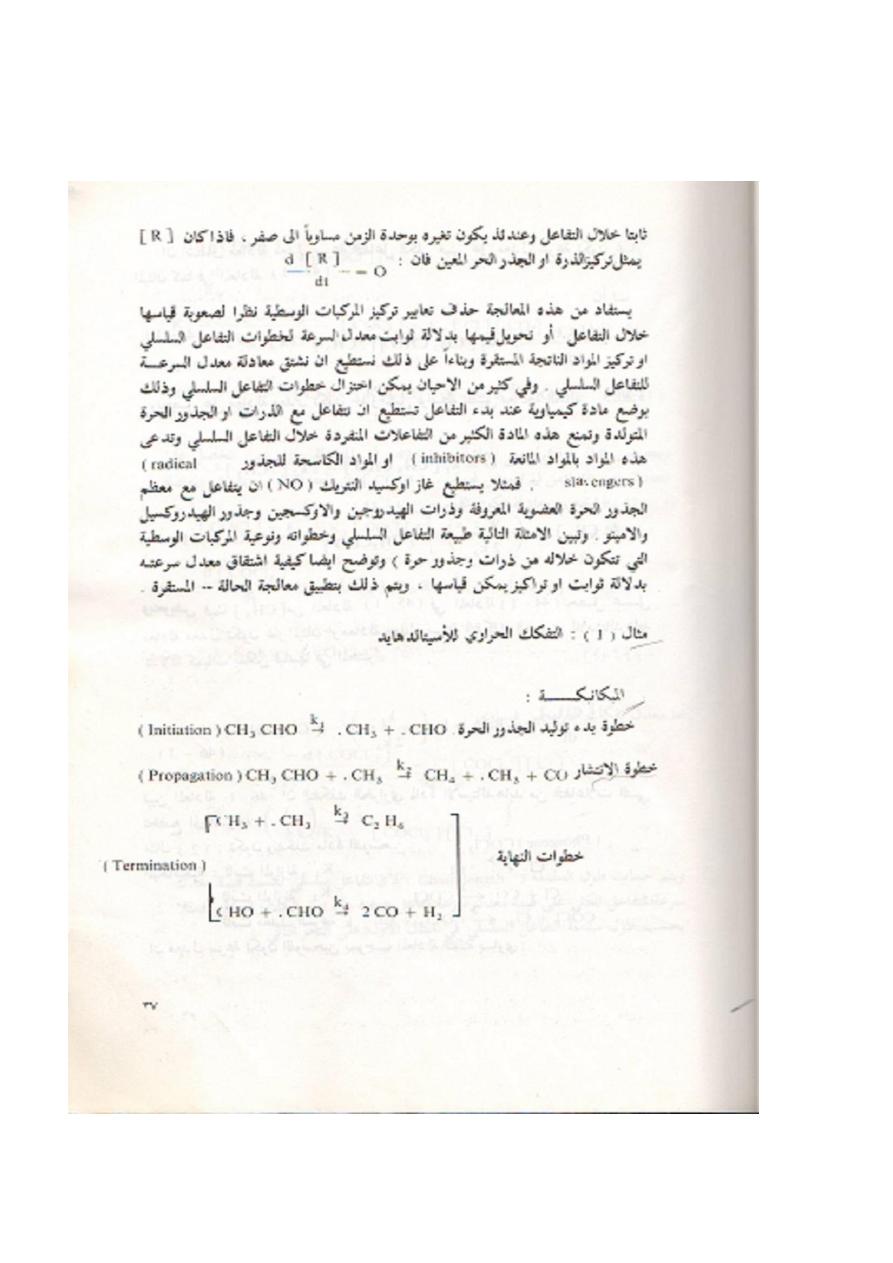 ثابتا خلال التفاعل وعندئذ يكون تغيره بوحدة الزمن مساوياً الى صفر ، فاذا كان [ R ]
يمثل تركيز الذرة او الجذر الحر المعين فان : d [ R ] / dt = O
يستفاد من هذه المعالجة حذف تعابير تركيز المركبات الوسطية نظرا لصعوبة قياسها
خلال التفاعل أو تحويل قيمها بدلالة ثوابت معدل السرعة لخطوات التفاعل السلسلي
او تركيز المواد الناتجة المستقرة وبناءاً على ذلك نستطيع ان نشتق معادلة معدل السرعـــة
للتفاعل السلسلي . وفي كثير من الاحيان يمكن اختزال خطوات التفاعل السلسلي وذلك
بوضع مادة كيمياوية عند بدء التفاعل تستطيع ان تتفاعل مع الذرات او الجذور الحرة
المتولدة وتمنع هذه المادة الكثير من التفاعلات المنفردة خلال التفاعل السلسلي وتدعى
هذه المواد بالمواد المانعة ( inhibitors ) او المواد الكاسحة للجذور ( radical
slavengers ) . فمثلا يستطيع غاز اوكسيد النتريك ( NO ) ان يتفاعل مع معظم
الجذور الحرة العضوية المعروفة وذرات الهيدروجين والاوكسجين وجذور الهيدروكسيل
والامينو . وتبين الامثلة التالية طبيعة التفاعل السلسلي وخطواته ونوعية المركبات الوسطية
التي تتكون خلاله من ذرات وجذور حرة ) وتوضح ايضا كيفية اشتقاق معدل سرعتـه
بدلالة ثوابت او تراكيز يمكن قياسها ، ويتم ذلك بتطبيق معالجة الحالة -- المستقرة .
مثال ( 1 ) : التفكك الحراري للأسيتالدهايد
الميكانيكــــــة :
خطوة بدء توليد الجذور الحرة ( Initiation ) CH₃ CHO k₁→ . CH₃ + . CHO
خطوة الانتشار ( Propagation ) CH₃ CHO + . CH₃ k₂→ CH₄ + . CH₃ + CO
CH₃ + . CH₃ k₃→ C₂ H₆
( Termination ) خطوات النهاية
CHO + . CHO k₄→ 2 CO + H₂
٣٧